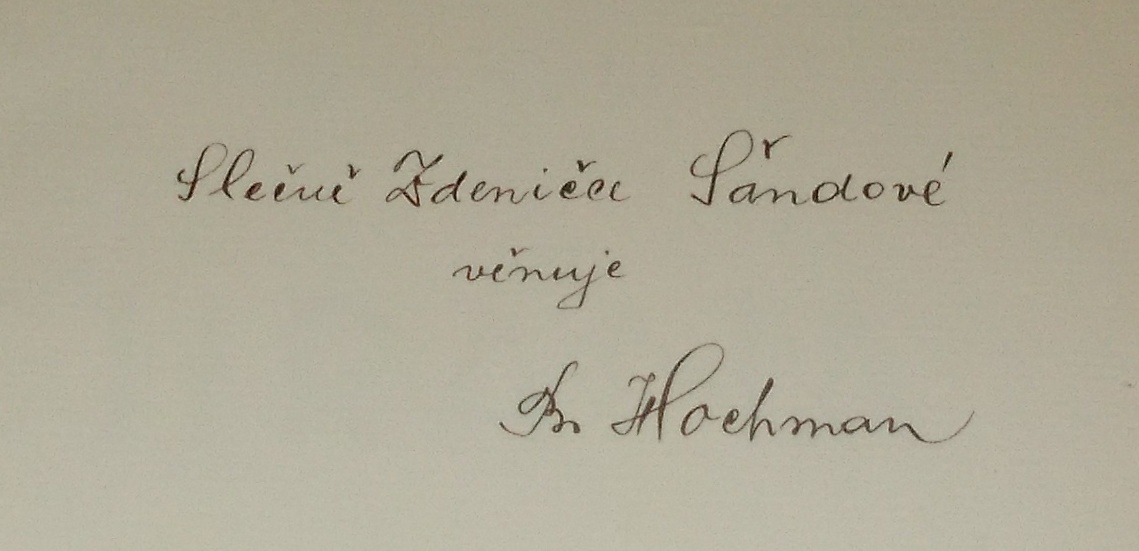 Slečně Zdeničce Šandové
věnuje
Br. Hochman